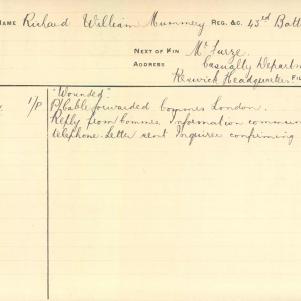 NAME Richard William Mummery REG. &C. 43rd Batt
NEXT OF KIN Mr Surge.
ADDRESS Casualty Departm
Keswick Headquarters. FI
1/P "Wounded".
P/Cable forwarded Commrs London.
Reply from Commrs. Information commun
telephone. Letter sent Inquirer confirming